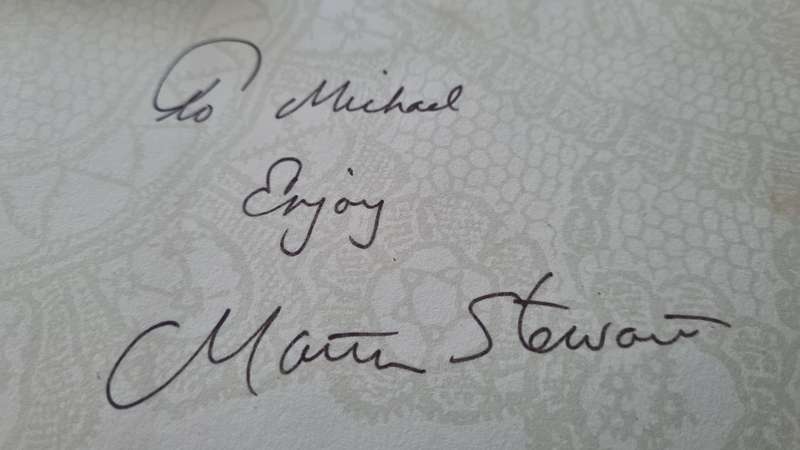 To Michael
Enjoy
Martin Stewart